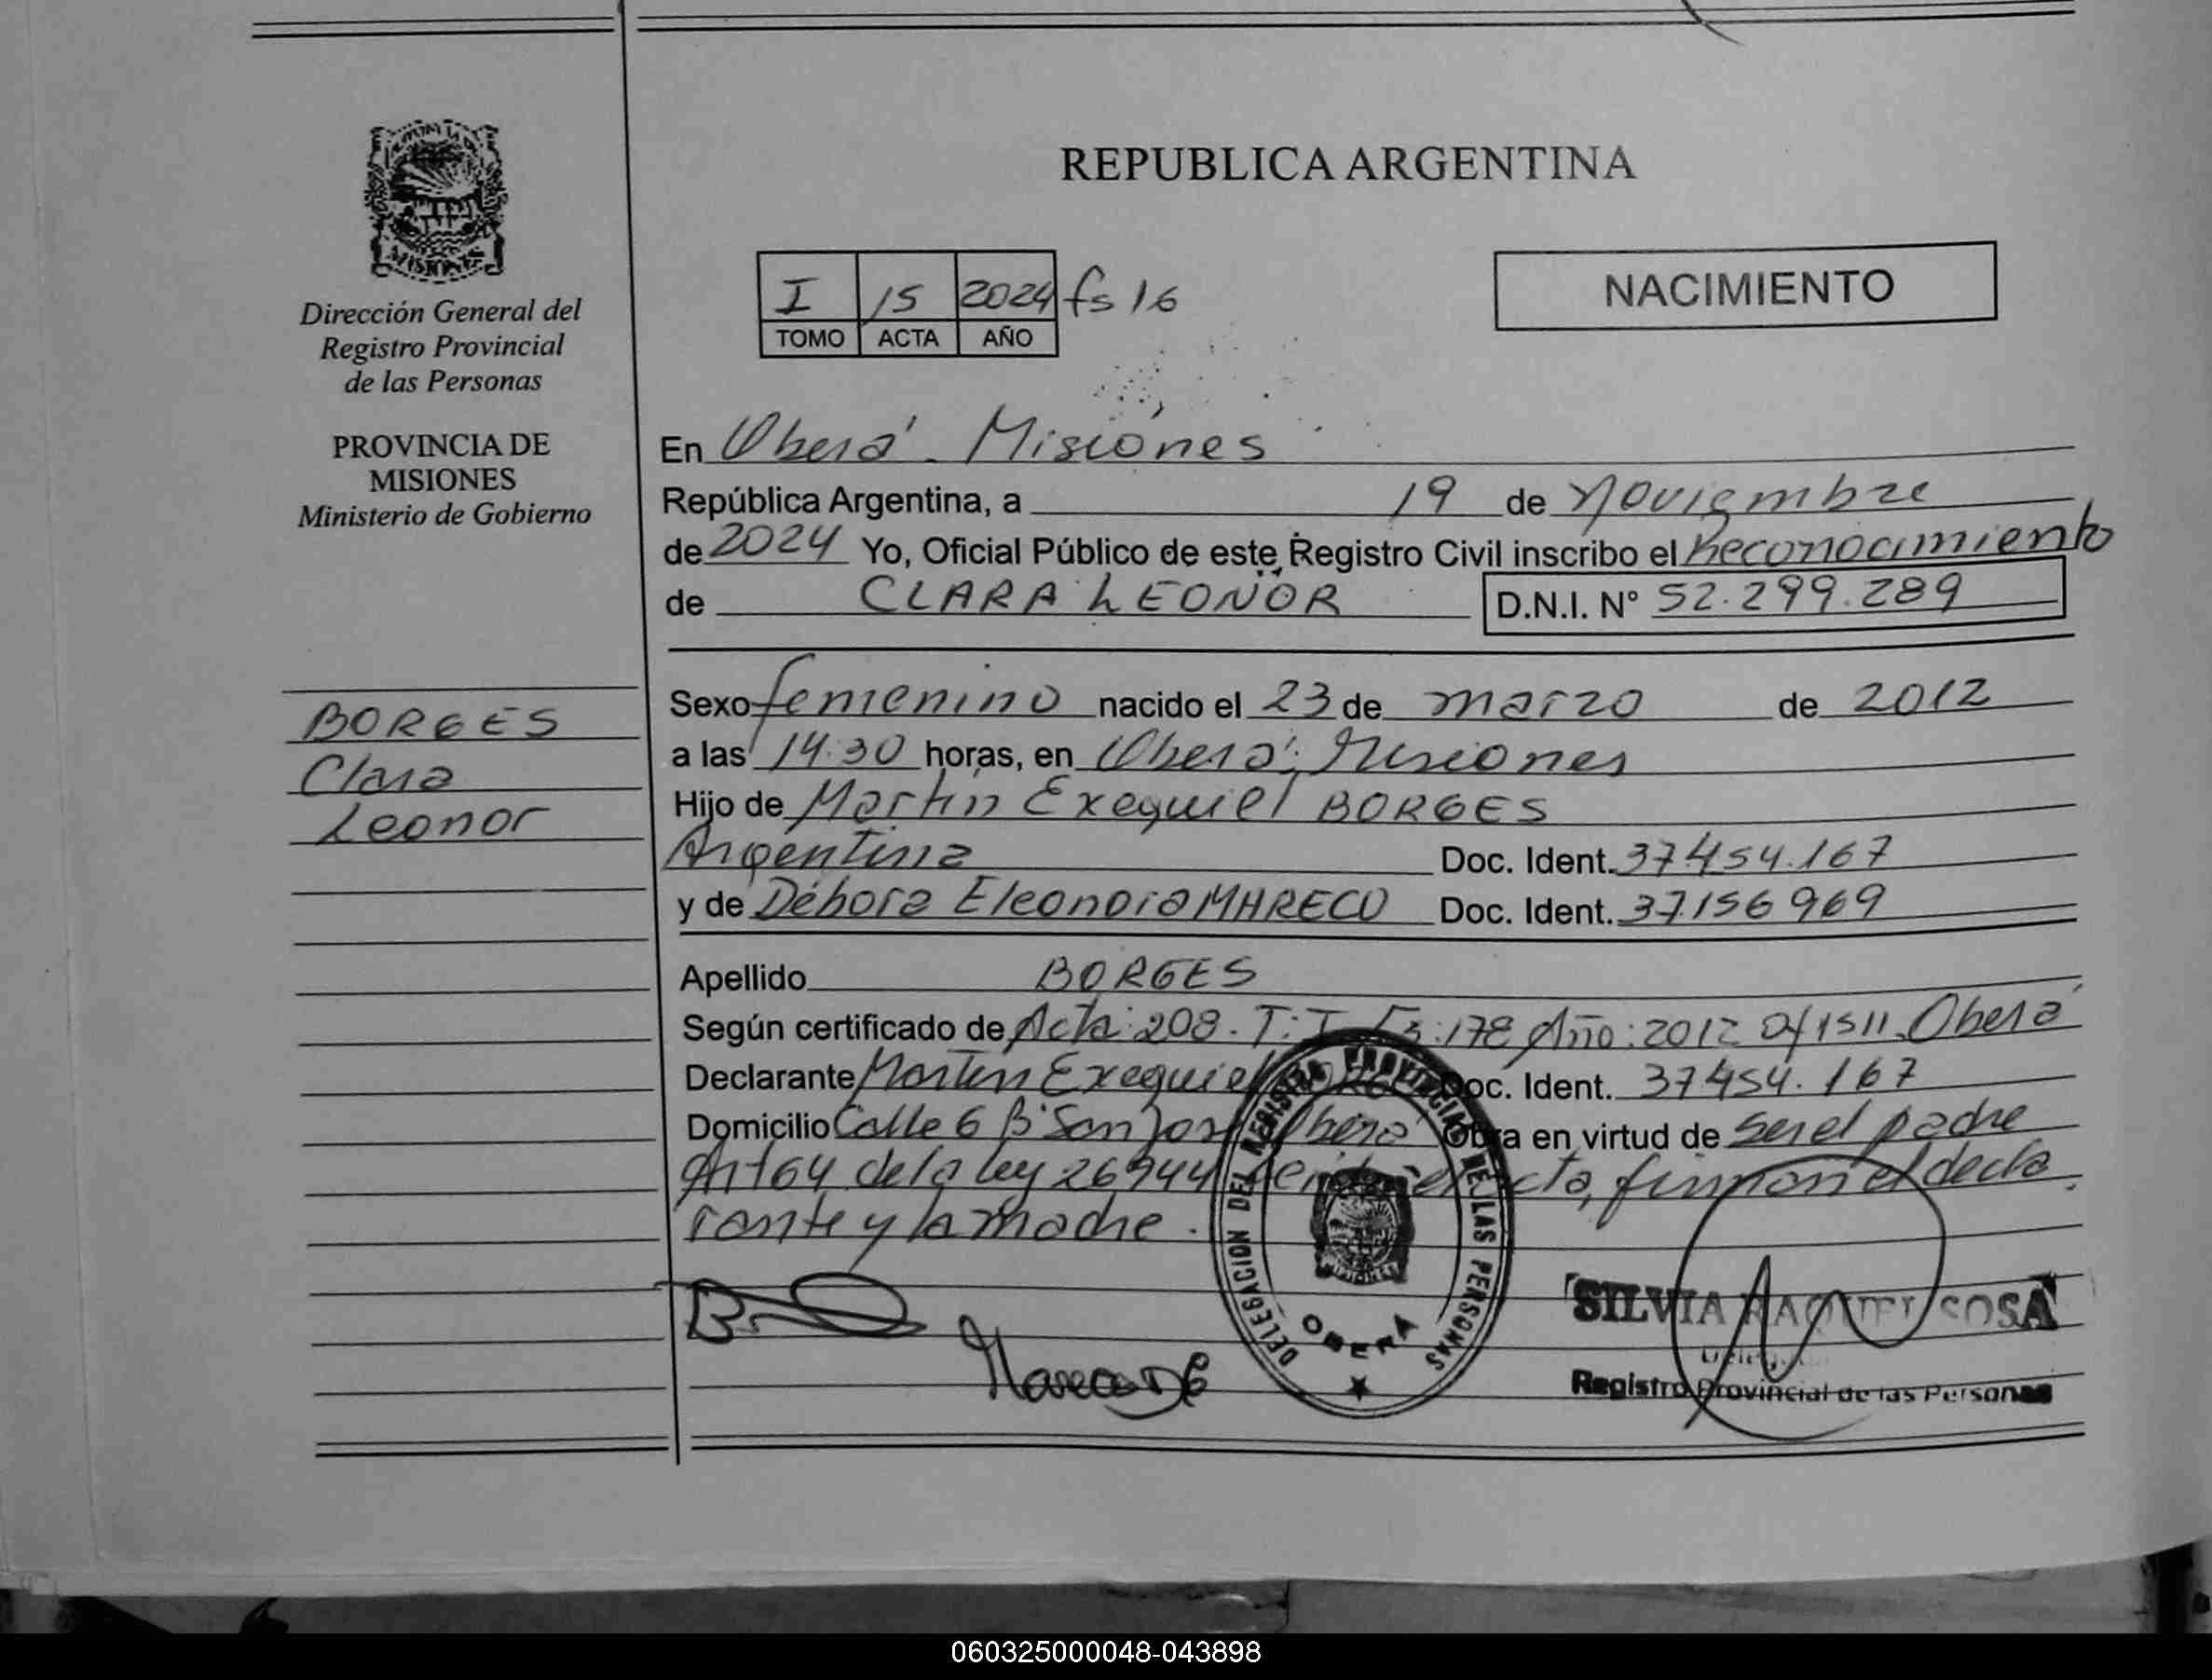 MISIONES
Dirección General del
Registro Provincial
de las Personas
PROVINCIA DE
MISIONES
Ministerio de Gobierno
BORGES
Clara
Leonor
REPUBLICA ARGENTINA
I 15 2024 fs 16
TOMO ACTA AÑO
NACIMIENTO
En Oberá - Misiones
República Argentina, a 19 de noviembre
de 2024 Yo, Oficial Público de este Registro Civil inscribo el Reconocimiento
de CLARA LEONOR D.N.I. N° 52.299.289
Sexo femenino nacido el 23 de marzo de 2012
a las 14:30 horas, en Oberá; Misiones
Hijo de Martín Exequiel BORGES
Argentina Doc. Ident. 37.454.167
y de Débora Eleonora MARECO Doc. Ident. 37.156 969
Apellido BORGES
Según certificado de Acta: 208. T: I Fs: 178 Año: 2012 Of 1511. Oberá
Declarante Martín Exequiel Doc. Ident. 37454.167
Domicilio Calle 6 B° San José Oberá Obra en virtud de ser el padre
Art 64 de la ley 26944 el acta, firman el decla
rante y la madre.
DELEGACION DEL REGISTRO PROVINCIAL DE LAS PERSONAS
MISIONES
OBERA
SILVIA RAQUEL SOSA
Registro Provincial de las Personas
060325000048-043898